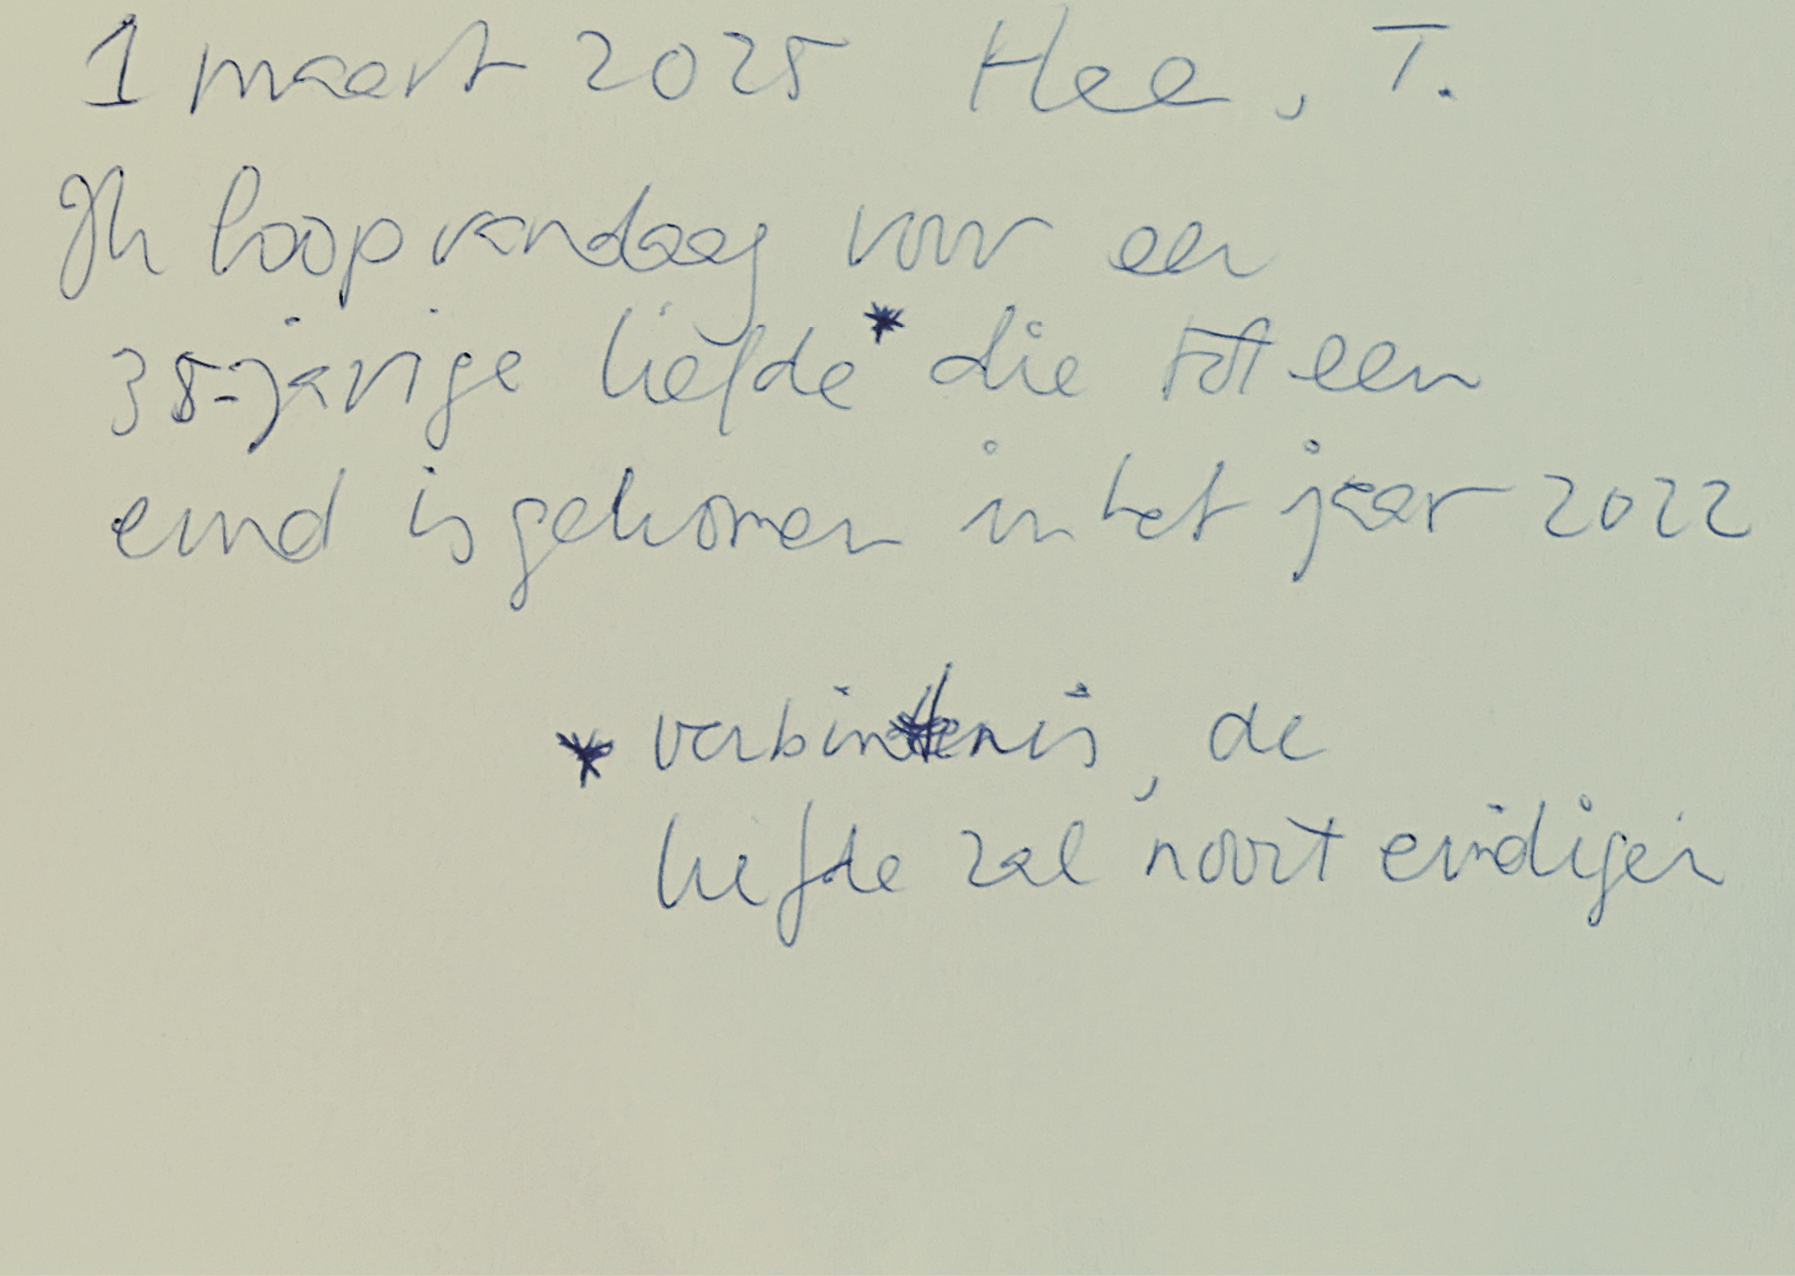 1 maart 2025 Hee, T.
Ik loop vandaag voor een
35-jarige liefde* die tot een
eind is gekomen in het jaar 2022
* verbintenis, de
liefde zal nooit eindigen